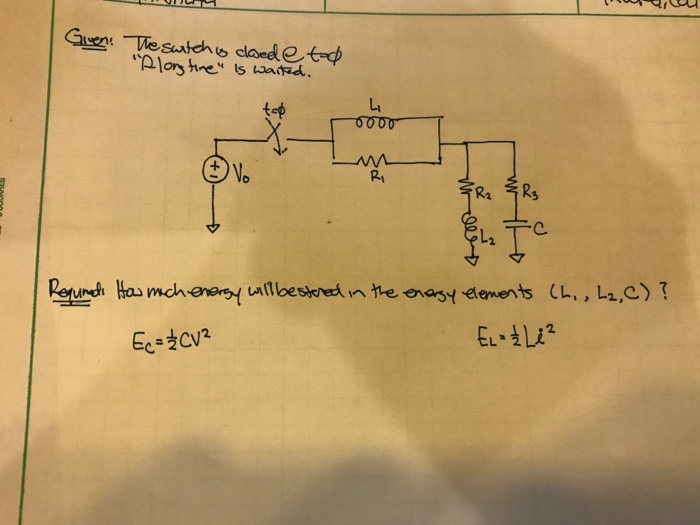 Given: The switch is closed @ t=ϕ
"A long time" is waited.
t=ϕ
L₁
R₁
+
-
V₀
R₂
R₃
L₂
C
Required: How much energy will be stored in the energy elements (L₁, L₂, C)?
E_C = ½CV²
E_L = ½Li²